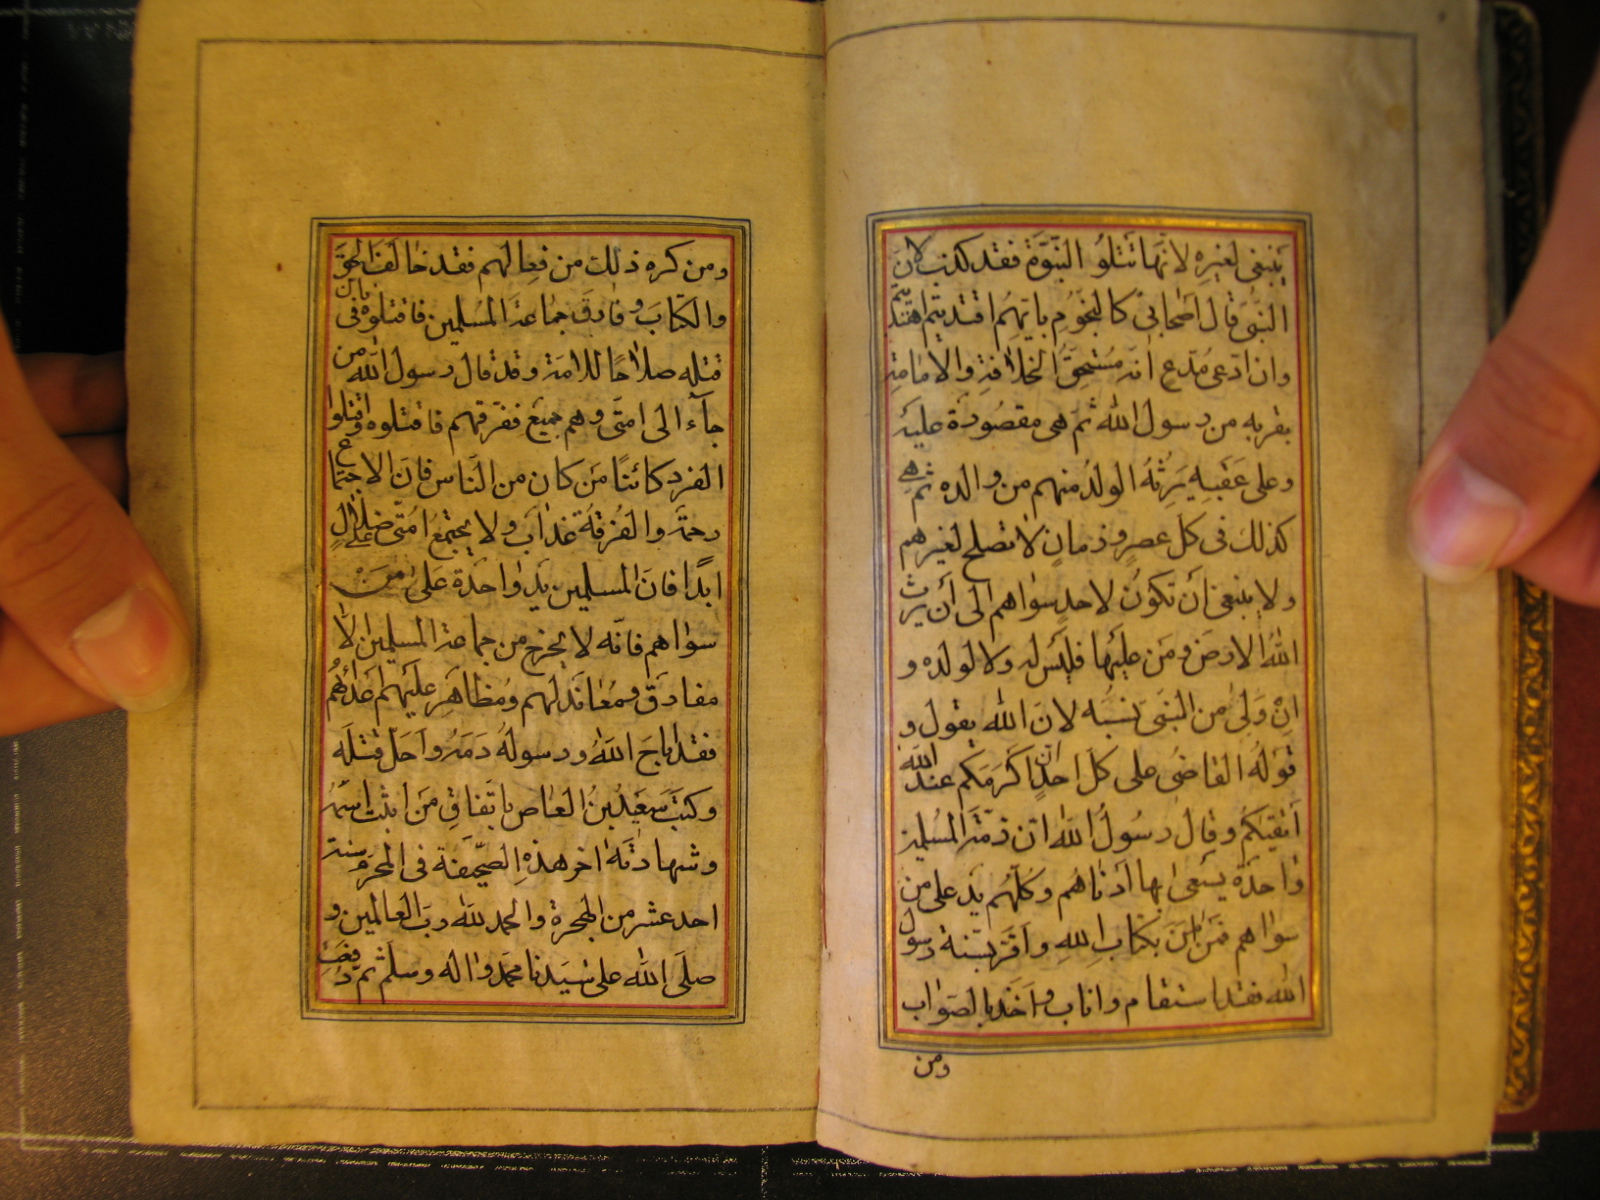 ينبغى لغيره لانّها تتلو النبّوّة فقد كذب لان
النبىّ قال اصحابى كالنجوم بايّهم اقتديتم اهتديتم
وان ادّعى مدّع انّه مستحقّ الخلافة والامامة
بقربه من رسول الله ثم هى مقصورة عليه
وعلى عقبه يرثه الولد منهم من والده ثم هى
كذلك فى كل عصر وزمان لا تصلح لغيرهم
ولا ينبغى أن تكون لاحد سواهم الى أن يرث
الله الارض ومن عليها فليس له ولا لولده و
ان ولى من النبى نسبه لان الله يقول و
قوله القاضى على كل احد انّ اكرمكم عند الله
أتقيكم وقال رسول الله ان ذمّة المسلمين
واحدة يسعى بها ادناهم وكلّهم يد على من
سواهم فمن امن بكتاب الله واقرّ بسنة رسول
الله فقد استقام واناب واخذ بالصواب
ومن
ومن كره ذلك من فعالهم فقد خالف الحقّ
والكتاب وفارق جماعة المسلمين فاقتلوه فانّ فى
قتله صلاحًا للامّة وقد قال رسول الله من
جاء الى امتى وهم جميع ففرقهم فاقتلوه واقتلوا
الفرد كائنًا من كان من الناس فان الاجتماع
رحمة والفرقة عذاب ولا يجتمع امّتى على ضلال
ابدًا فانّ المسلمين يد واحدة على من
سواهم فانّه لا يخرج من جماعة المسلمين الّا
مفارق ومعاند لهم ومظاهر عليهم اعداءهم
فقد اباح الله ورسوله دمه واحل قتله
وكتب سعيد بن العاص باتفاق من اثبت اسمه
وشهادته اخر هذه الصّحيفة فى المحرم سنة
احد عشر من الهجرة والحمد لله ربّ العالمين و
صلّى الله على سيّدنا محمد واله وسلم ثم دفعت